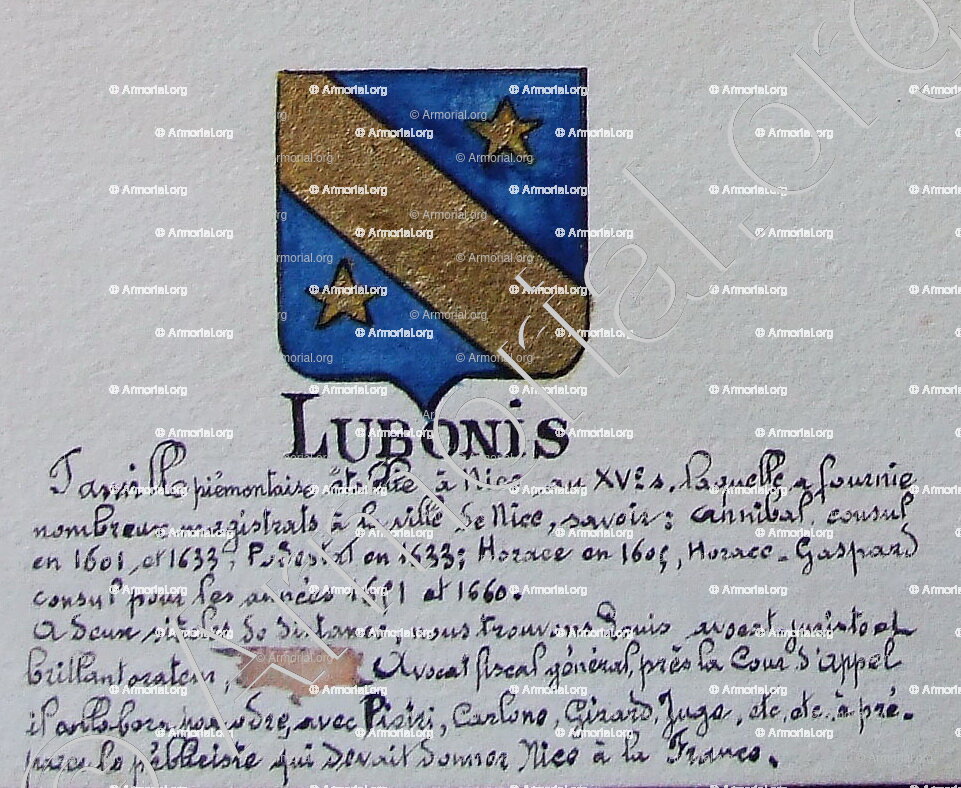 LUBONIS
Famille piémontaise établie à Nice au XVe s. laquelle a fournie
nombreux magistrats à la ville de Nice, savoir: Cannibal consul
en 1601 et 1633; Podestat en 1633; Horace en 1605, Horace-Gaspard
consul pour les années et 1660.
A deux siècles de distance, nous trouvons Louis avocat juriste et
brillant orateur; Avocat fiscal général, près la Cour d'Appel
il collabora avec Piétri, Carlone, Girard, Juge, etc, etc, à pré-
parer le plébiscite qui devait donner Nice à la France.
© Armorial.org